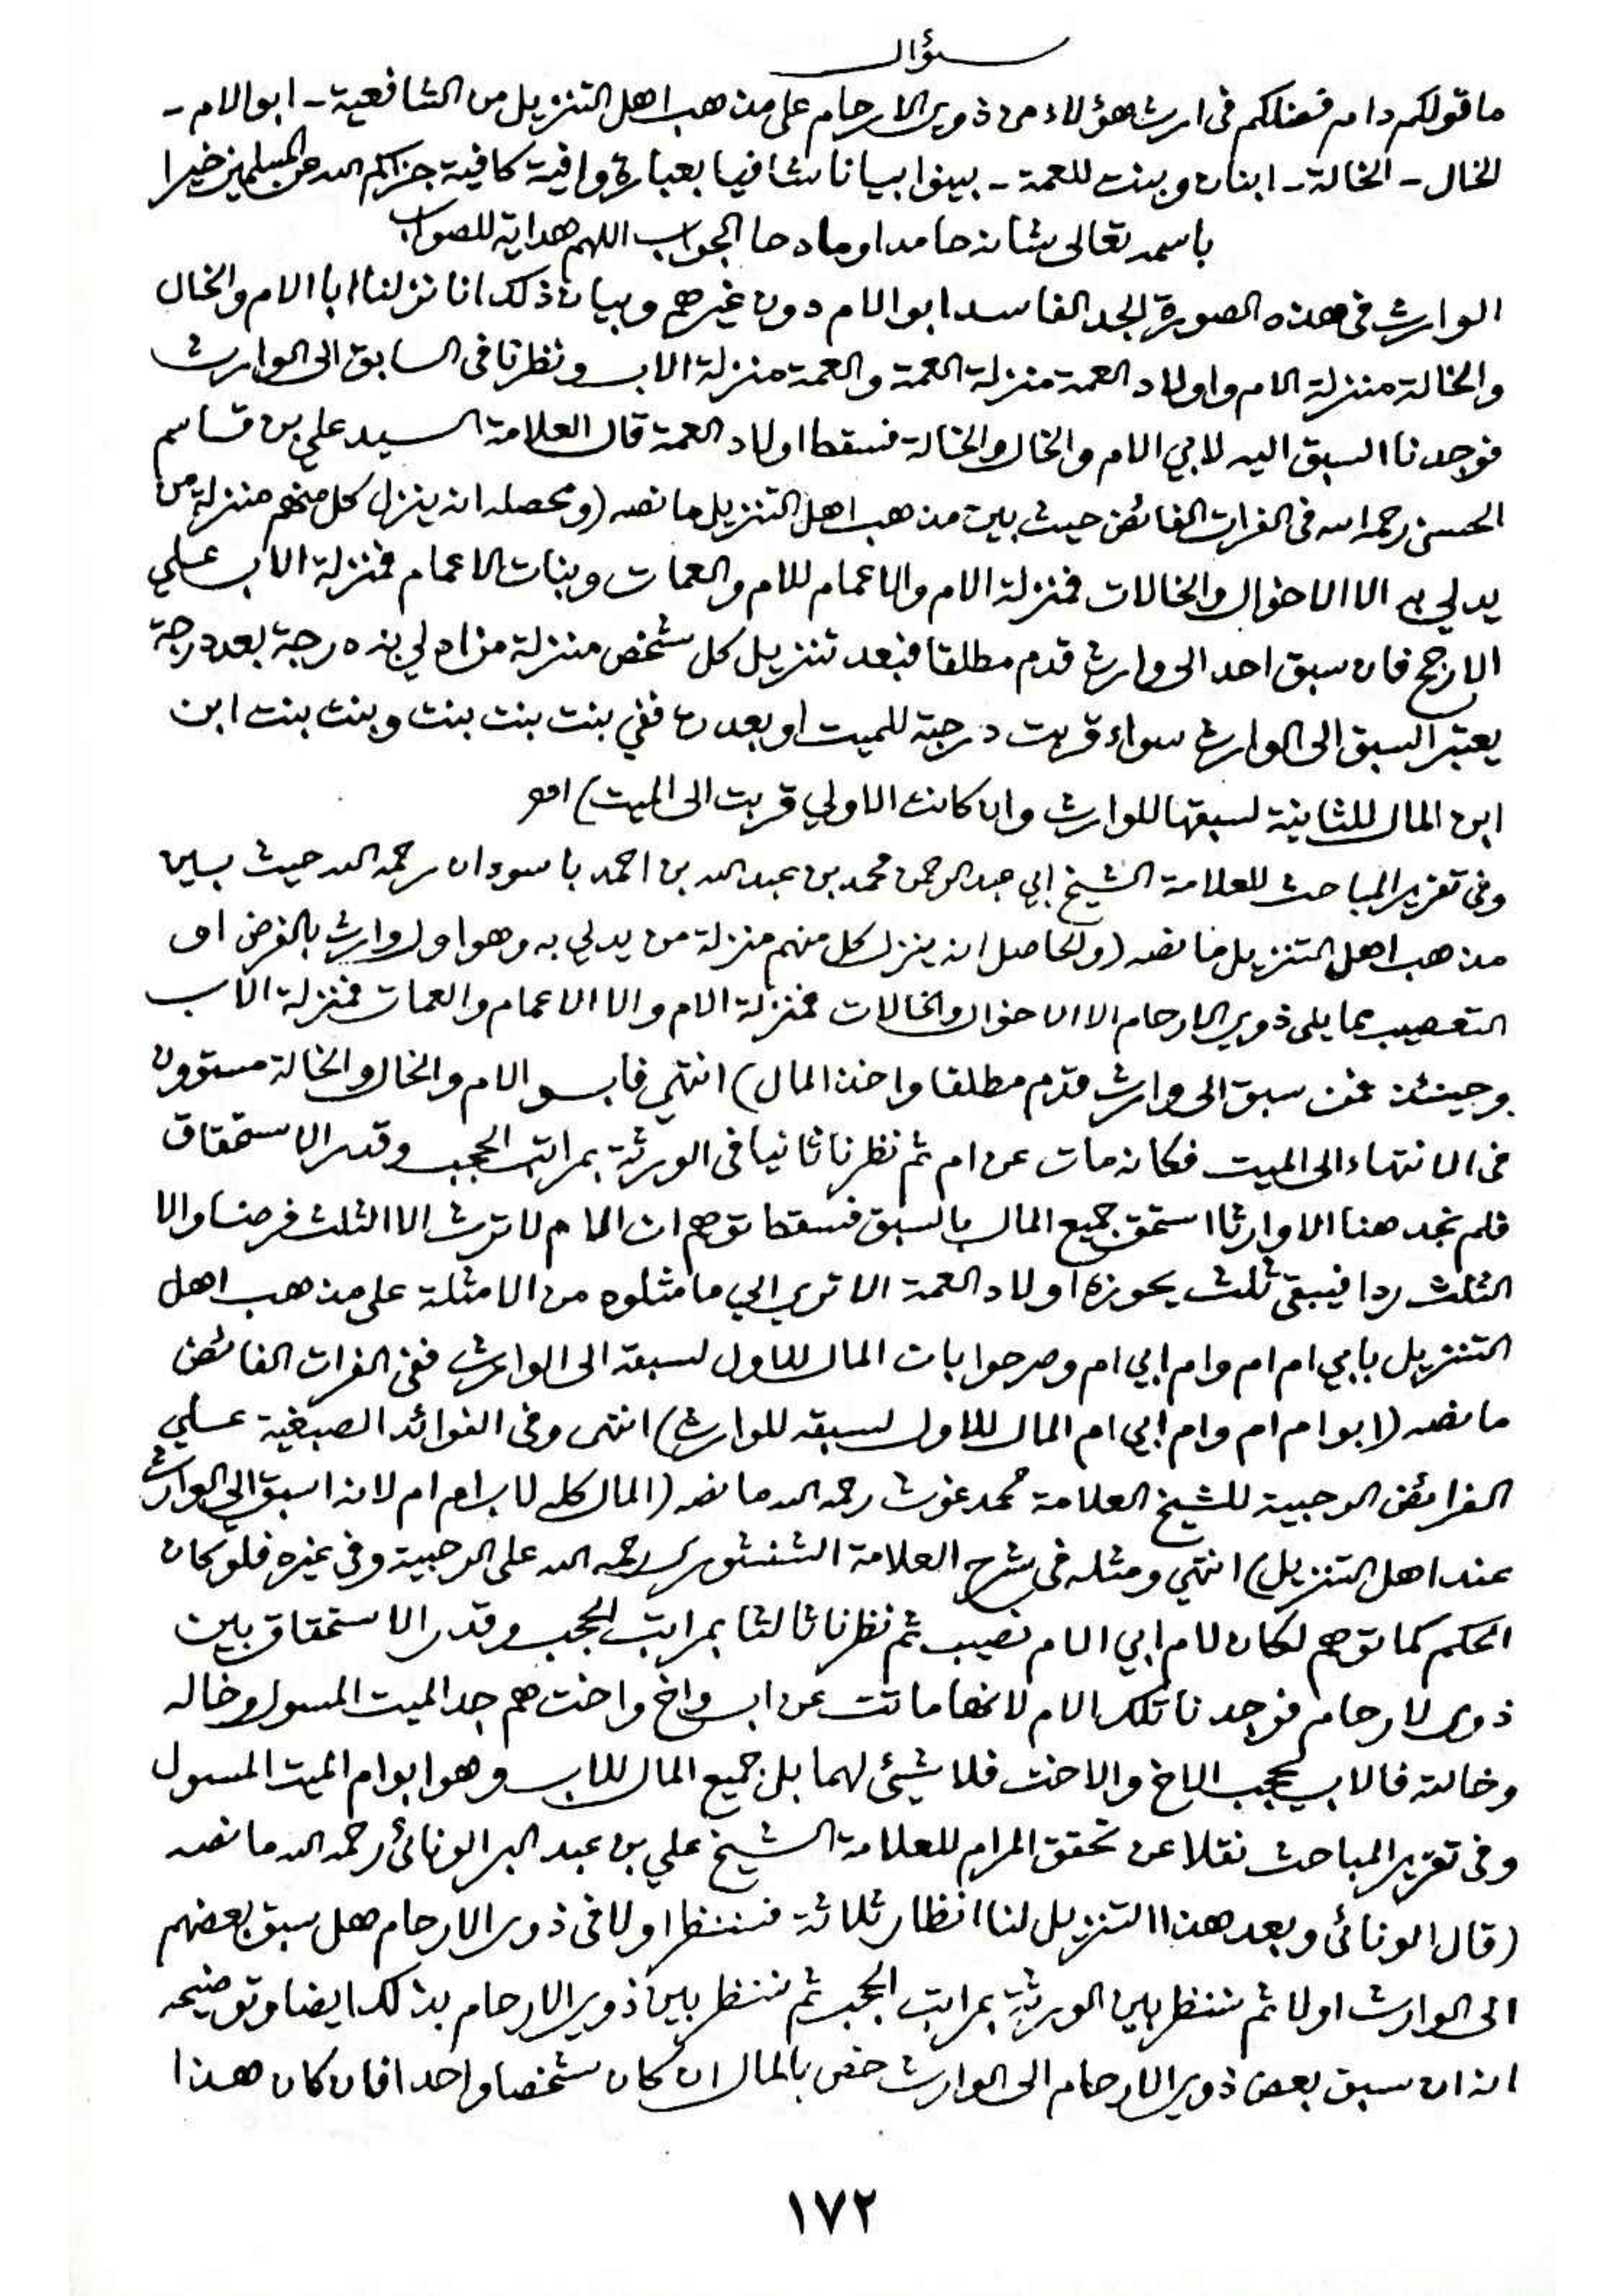 سؤال
ما قولكم دام فضلكم في ارث هؤلاء من ذوي الارحام على مذهب اهل التنزيل من الشافعية - ابو الام -
الخال - الخالة - ابنان وبنت للعمة - بينوا بيانا شافيا بعبارة وافية كافية جزاكم الله عن المسلمين خيرا
باسمه تعالى شانه حامدا ومادحا الجواب اللهم هداية للصواب
الوارث في هذه الصورة الجد الفاسد ابو الام دون غيرهم وبيان ذلك انا نزلنا ابا الام والخال
والخالة منزلة الام واولاد العمة منزلة العمة والعمة منزلة الاب ونظرنا في السابق الى الوارث
فوجدنا السبق اليه لابي الام والخال والخالة فسقط اولاد العمة قال العلامة السيد علي بن قاسم
الحسني رحمه الله في الفرات الفائض حيث بين مذهب اهل التنزيل ما نصه (ومحصله انه ينزل كل منهم منزلة من
يدلي به الا الاخوال والخالات فمنزلة الام والاعمام للام والعمات وبنات الاعمام فمنزلة الاب علي
الارجح فان سبق احد الى وارث قدم مطلقا فبعد تنزيل كل شخص منزلة من ادلي به درجة بعد درجة
يعتبر السبق الى الوارث سواء قربت درجته للميت او بعدت ففي بنت بنت بنت وبنت بنت ابن
ابن المال للثانية لسبقها للوارث وان كانت الاولي قربت الى الميت) اهـ
وفي تقرير المباحث للعلامة الشيخ ابي عبد الرحمن محمد بن عبد الله بن احمد باسودان رحمه الله حيث بين
مذهب اهل التنزيل ما نصه (والحاصل انه ينزل كل منهم منزلة من يدلي به وهو اول وارث بالفرض او
التعصيب مما يلي ذوي الارحام الا الاخوال والخالات فمنزلة الام والا الاعمام والعمات فمنزلة الاب
وحينئذ فمن سبق الى وارث قدم مطلقا واخذ المال) انتهي فابو الام والخال والخالة مستوون
في الانتهاء الى الميت فكانه مات عن ام ثم نظرنا ثانيا في الورثة بمراتب الحجب وقدر الاستحقاق
فلم نجد هنا الا وارثا استحق جميع المال بالسبق فسقط توهم ان الام لا ترث الا الثلث فرضا والا
الثلث ردا فيبقى ثلث يحوزه اولاد العمة الا تري الي ما مثلوه من الامثلة على مذهب اهل
التنزيل بابي ام ام وام ابي ام وصرحوا بان المال للاول لسبقه الى الوارث ففي الفرات الفائض
ما نصه (ابو ام ام وام ابي ام المال للاول لسبقه للوارث) انتهى وفي الفوائد الصبغية علي
الفرائض الرحبية للشيخ العلامة محمد غوث رحمه الله ما نصه (المال كله لاب ام ام لانه اسبق الي الوارث
عند اهل التنزيل) انتهي ومثله في شرح العلامة الشنشوري رحمه الله على الرحبية وفي غيره فلو كان
الحكم كما توهم لكان لام ابي الام نصيب ثم نظرنا ثالثا بمراتب الحجب وقدر الاستحقاق بين
ذوي الارحام فوجدنا تلك الام لانها ماتت عن اب واخ واخت هم جد الميت المسول وخاله
وخالته فالاب يحجب الاخ والاخت فلا شيئ لهما بل جميع المال للاب وهو ابو ام الميت المسول
وفي تقرير المباحث نقلا عن تحقق المرام للعلامة الشيخ علي بن عبد البر الونائي رحمه الله ما نصه
(قال الونائي وبعد هذا التنزيل لنا انظار ثلاثة فننظر اولا في ذوي الارحام هل سبق بعضهم
الى الوارث اولا ثم ننظر بين الورثة بمراتب الحجب ثم ننظر بين ذوي الارحام بذلك ايضا وتوضيحه
انه ان سبق بعض ذوي الارحام الى الوارث خص بالمال ان كان شخصا واحدا فان كان هذا
١٧٢